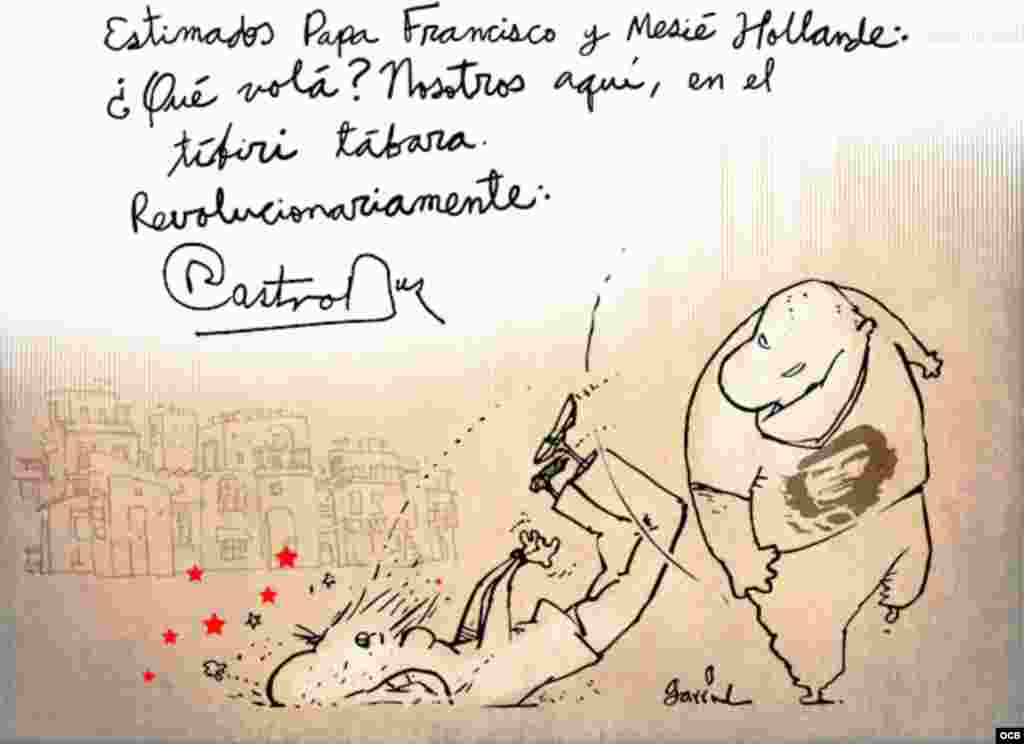 Estimados Papa Francisco y Mesié Hollande:.
¿Qué volá? Nosotros aquí, en el
tíbiri tábara.
Revolucionariamente:.
Castro Ruz
OCB